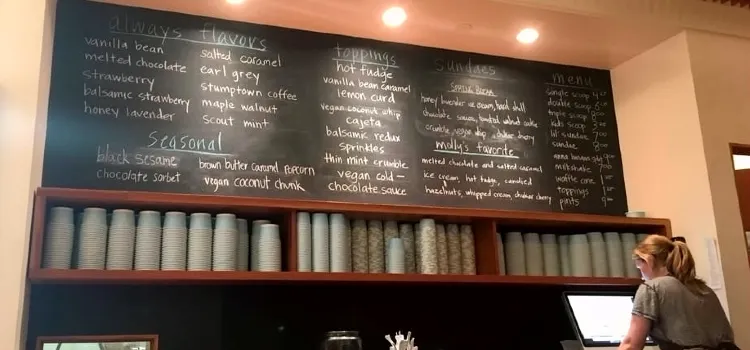 always flavors
vanilla bean
melted chocolate
strawberry
balsamic strawberry
honey lavender
salted caramel
earl grey
stumptown coffee
maple walnut
scout mint
seasonal
black sesame
chocolate sorbet
brown butter caramel popcorn
vegan coconut chunk
toppings
hot fudge
vanilla bean caramel
lemon curd
vegan coconut whip
cajeta
balsamic redux
sprinkles
thin mint crumble
vegan cold-
chocolate sauce
sundaes
honey lavender ice cream, hard shell
chocolate sauce,
crumble, vegan whip
molly's favorite
melted chocolate and salted caramel
ice cream, hot fudge, candied
hazelnuts, whipped cream, cherry
menu
single scoop
double scoop
triple scoop
kids scoop
lil' sundae
sundae
milkshake
waffle cone
toppings
pints